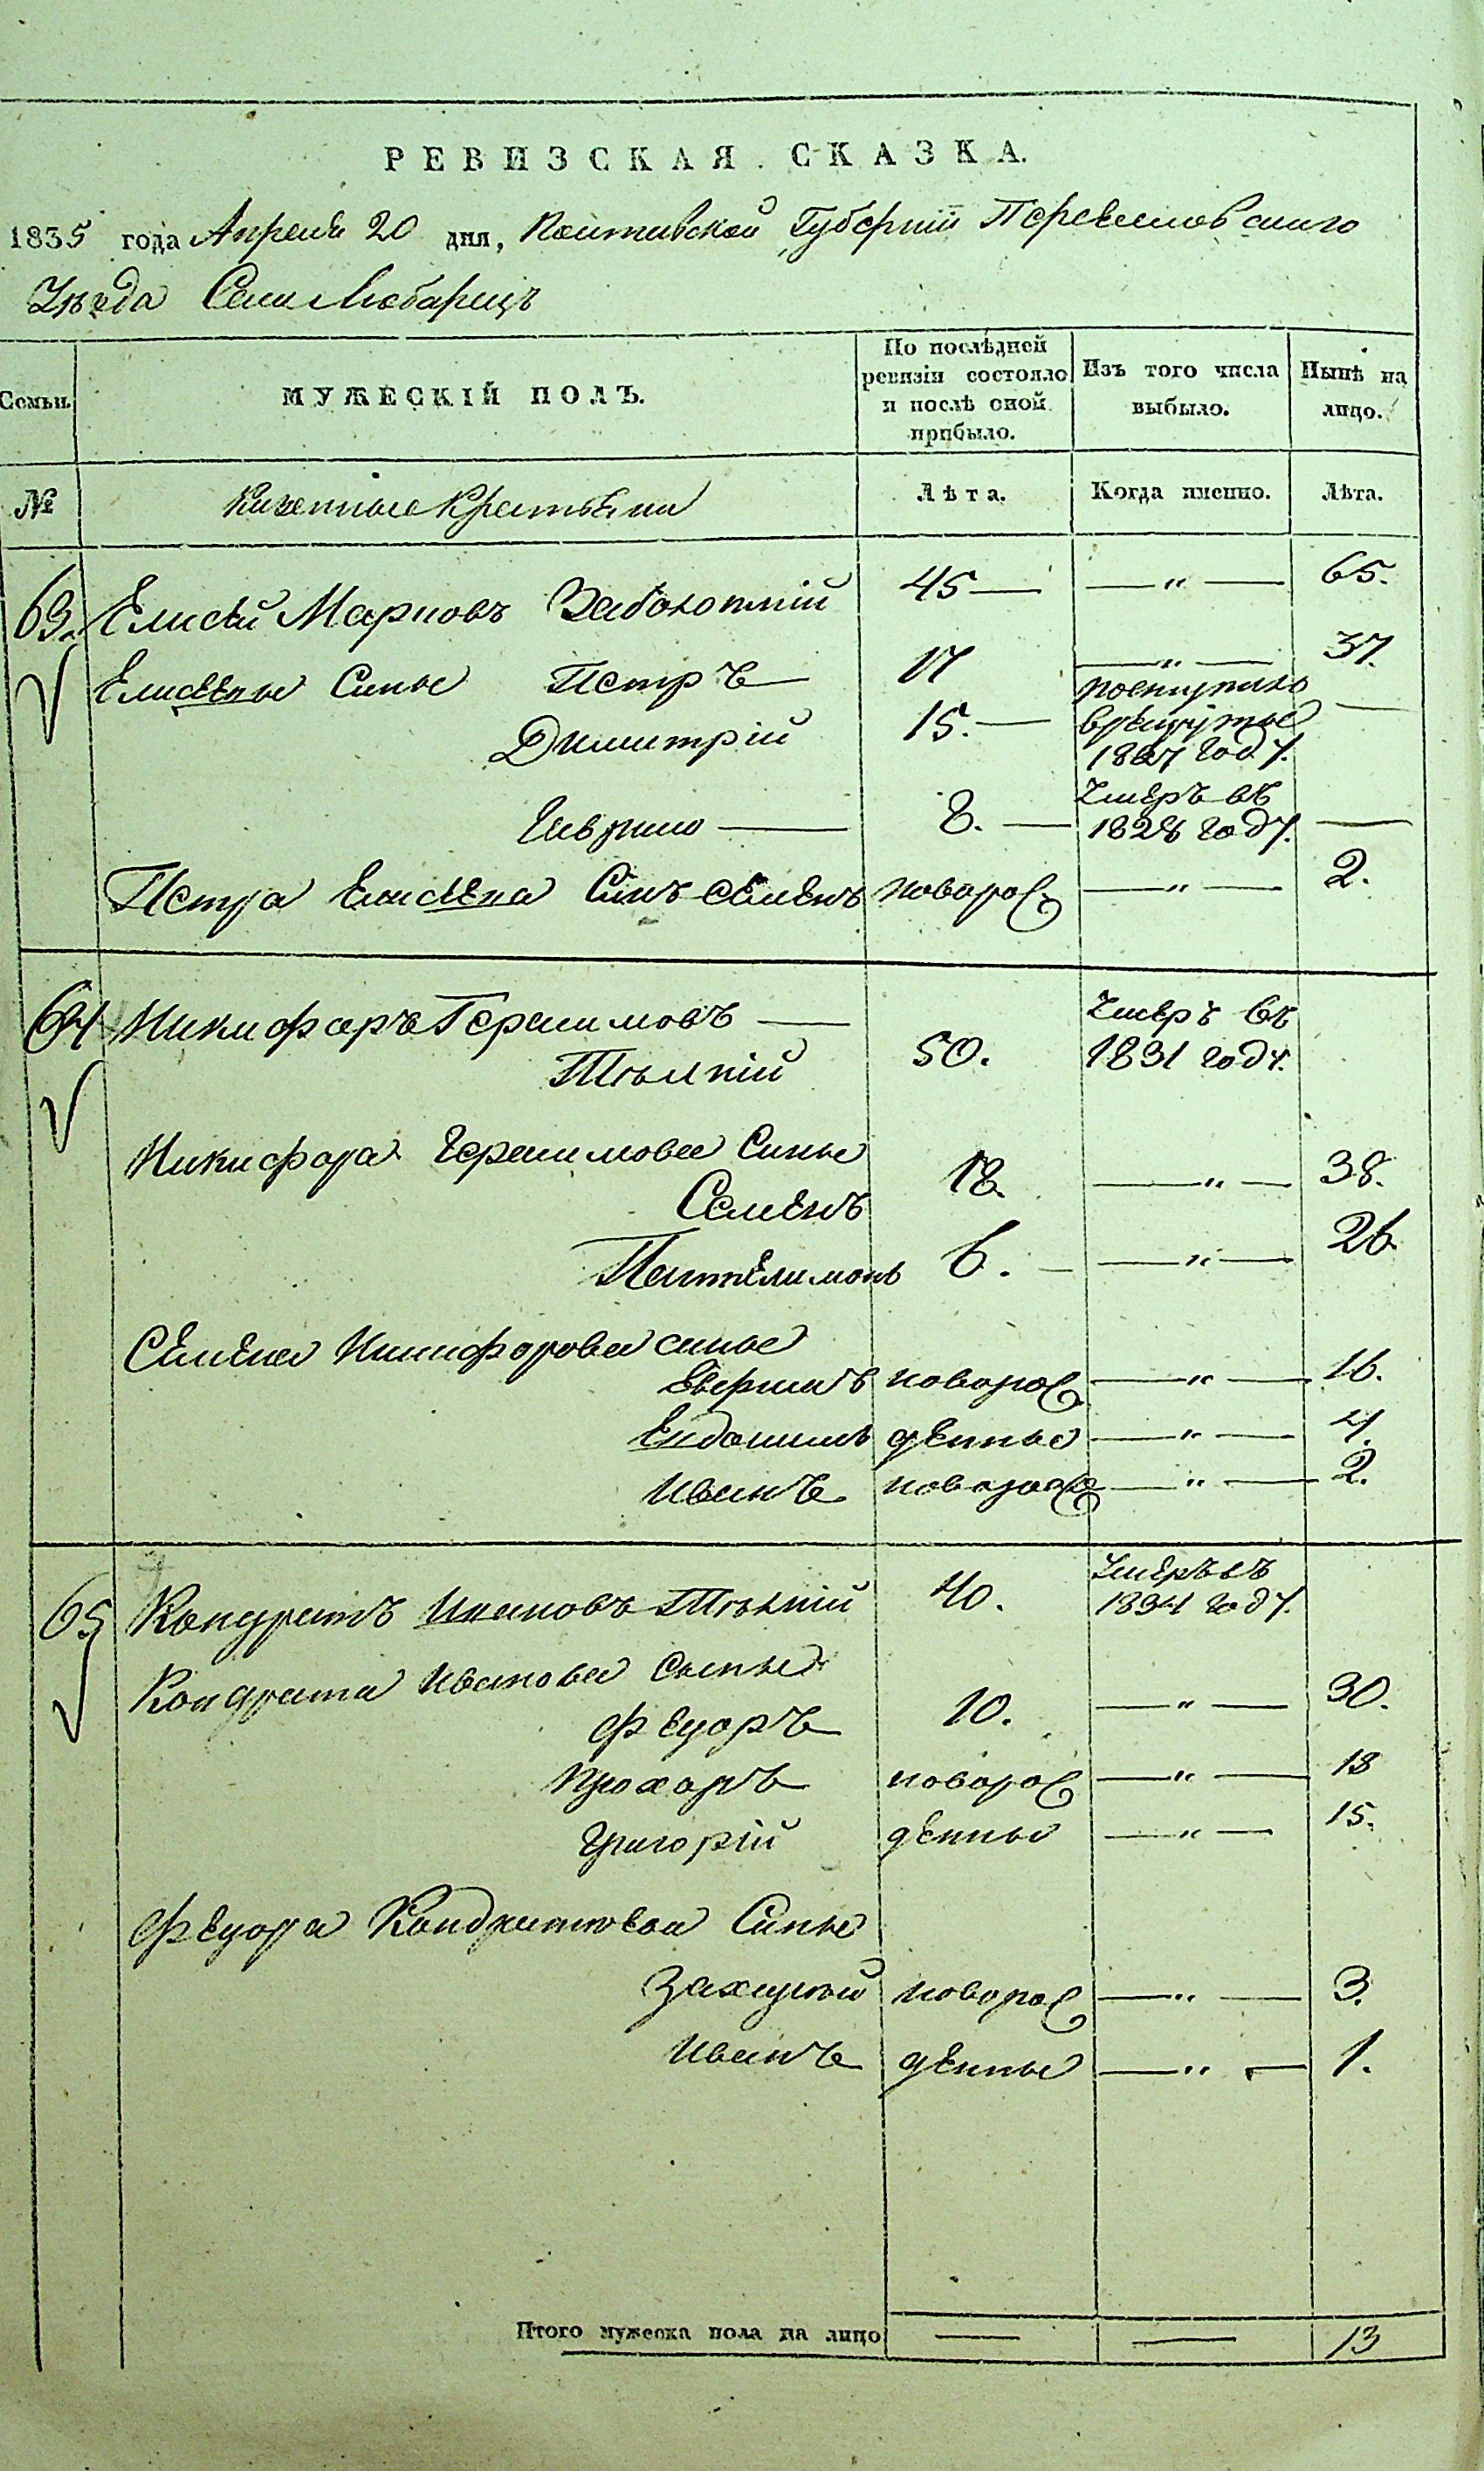 РЕВИЗСКАЯ СКАЗКА.
1835 года Апреля 20 дня, Полтавской Губернии Переяславского
Уѣзда Села Любарецъ
Семьи.
МУЖЕСКІЙ ПОЛЪ.
По послѣдней ревизіи состояло и послѣ оной прибыло.
Изъ того числа выбыло.
Нынѣ на лицо.
№
Казенные Крестьяне
Лѣта.
Когда именно.
Лѣта.
63. Елисѣй Марковъ Заболотній 45 — — „ — 65.
Елисѣева Сины Петръ — 17 — „ — 37.
Димитрій 15. — поступилъ в рекруты 1827 году. —
Гаврило — 8. — Умеръ въ 1828 году. —
Петра Елисѣева Синъ Семенъ новорож — „ — 2.
64 Никифоръ Герасимовъ —
50. Умеръ въ 1831 году.
Никифора Герасимова Сины
Семенъ 18. — „ — 38.
Пантелимонъ 6. — — „ — 26.
Семена Никифорова сины
новорож — „ — 16.
Евдокимъ денные — „ — 4.
Иванъ новорож — „ — 2.
65 Кондратъ Ивановъ 40. Умеръ въ 1834 году.
Кондрата Иванова Сыны
Федоръ 10. — „ — 30.
Прохоръ новорож — „ — 18
Григорій денные — „ — 15.
Федора Кондратова Сины
Захарій новорож — „ — 3.
Иванъ денные — „ — 1.
Итого мужеска пола на лицо — — 13